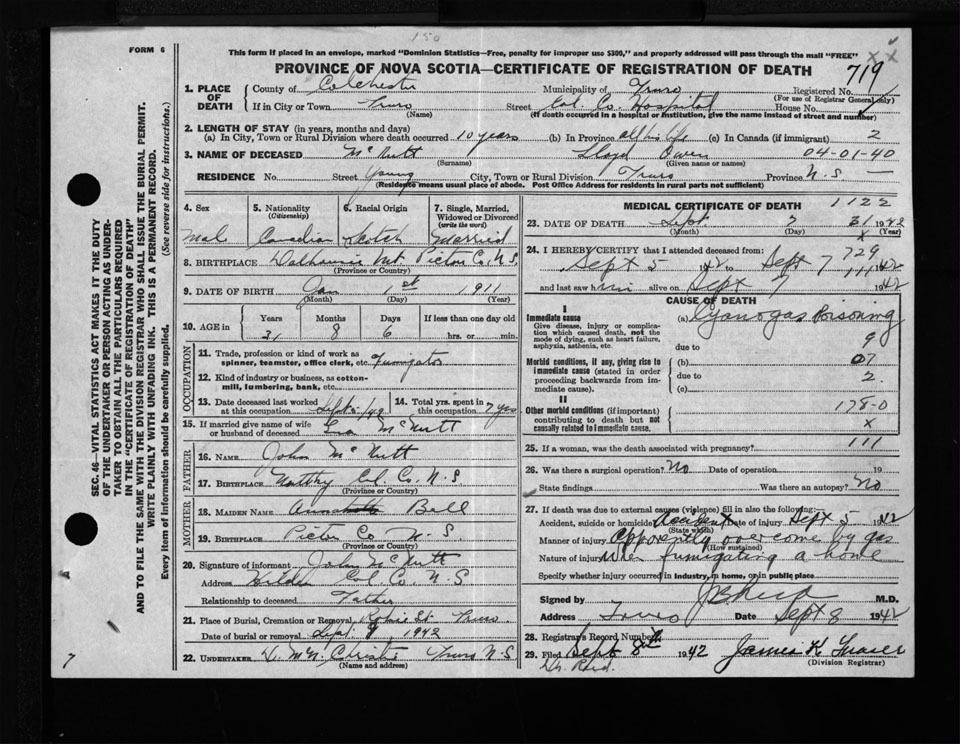 150
FORM 6
This form if placed in an envelope, marked "Dominion Statistics—Free, penalty for improper use $300," and properly addressed will pass through the mail "FREE"
PROVINCE OF NOVA SCOTIA—CERTIFICATE OF REGISTRATION OF DEATH
719
1. PLACE OF DEATH
County of Colchester Municipality of Truro Registered No.
(For use of Registrar General only)
If in City or Town Truro Street Col. Co. Hospital House No.
(Name) (If death occurred in a hospital or institution, give the name instead of street and number)
2. LENGTH OF STAY (in years, months and days)
(a) In City, Town or Rural Division where death occurred 10 years (b) In Province all his life (c) In Canada (if immigrant) 2
3. NAME OF DECEASED McNutt Lloyd Owen 04-01-40
(Surname) (Given name or names)
RESIDENCE No. Street Young City, Town or Rural Division Truro Province N.S —
(Residence means usual place of abode. Post Office Address for residents in rural parts not sufficient)
4. Sex
Male
5. Nationality (Citizenship)
Canadian
6. Racial Origin
Scotch
7. Single, Married, Widowed or Divorced (write the word)
Married
8. BIRTHPLACE Dalhousie Mt. Pictou Co. N.S.
(Province or Country)
9. DATE OF BIRTH Jan 1st 1911
(Month) (Day) (Year)
10. AGE in
Years Months Days If less than one day old
31 8 6 hrs. or min.
OCCUPATION
11. Trade, profession or kind of work as spinner, teamster, office clerk, etc. Fumigator
12. Kind of industry or business, as cotton-mill, lumbering, bank, etc.
13. Date deceased last worked at this occupation Sept 5/42
14. Total yrs. spent in this occupation 7 yrs
15. If married give name of wife or husband of deceased McNutt
FATHER
16. NAME John McNutt
17. BIRTHPLACE Col. Co. N.S
(Province or Country)
MOTHER
18. MAIDEN NAME Bell
19. BIRTHPLACE Pictou Co N.S.
(Province or Country)
20. Signature of informant John McNutt
Address Hilden Col. Co. N.S
Relationship to deceased Father
21. Place of Burial, Cremation or Removal St. Truro
Date of burial or removal Sept. 9, 1942
22. UNDERTAKER Christie Truro N.S
(Name and address)
MEDICAL CERTIFICATE OF DEATH 1122
23. DATE OF DEATH Sept 7 1942
(Month) (Day) (Year)
24. I HEREBY CERTIFY that I attended deceased from:
729
Sept 5 1942 to Sept 7 1942
111
and last saw him alive on Sept 7 1942
CAUSE OF DEATH
I
Immediate cause
Give disease, injury or complication which caused death, not the mode of dying, such as heart failure, asphyxia, asthenia, etc.
(a) Cyanogas Poisoning
due to 9
Morbid conditions, if any, giving rise to immediate cause (stated in order proceeding backwards from immediate cause).
(b) 07
due to 2.
(c)
II
Other morbid conditions (if important) contributing to death but not causally related to immediate cause.
178-0
x
25. If a woman, was the death associated with pregnancy? 111
26. Was there a surgical operation? No Date of operation 19
State findings Was there an autopsy? No
27. If death was due to external causes (violence) fill in also the following:—
Accident, suicide or homicide Accident Date of injury Sept 5 1942
(State which)
Manner of injury Apparently overcome by gas
(How sustained)
Nature of injury when fumigating a home
Specify whether injury occurred in industry, in home, or in public place
Signed by M.D.
Address Truro Date Sept 8 1942
28. Registrar's Record Number
29. Filed Sept 8th 1942 James K Fraser
(Division Registrar)
SEC. 46—VITAL STATISTICS ACT MAKES IT THE DUTY
OF THE UNDERTAKER OR PERSON ACTING AS UNDERTAKER TO OBTAIN ALL THE PARTICULARS REQUIRED
IN THE "CERTIFICATE OF REGISTRATION OF DEATH"
AND TO FILE THE SAME WITH THE DIVISION REGISTRAR WHO SHALL ISSUE THE BURIAL PERMIT.
WRITE PLAINLY WITH UNFADING INK. THIS IS A PERMANENT RECORD.
Every item of information should be carefully supplied. (See reverse side for instructions.)
7